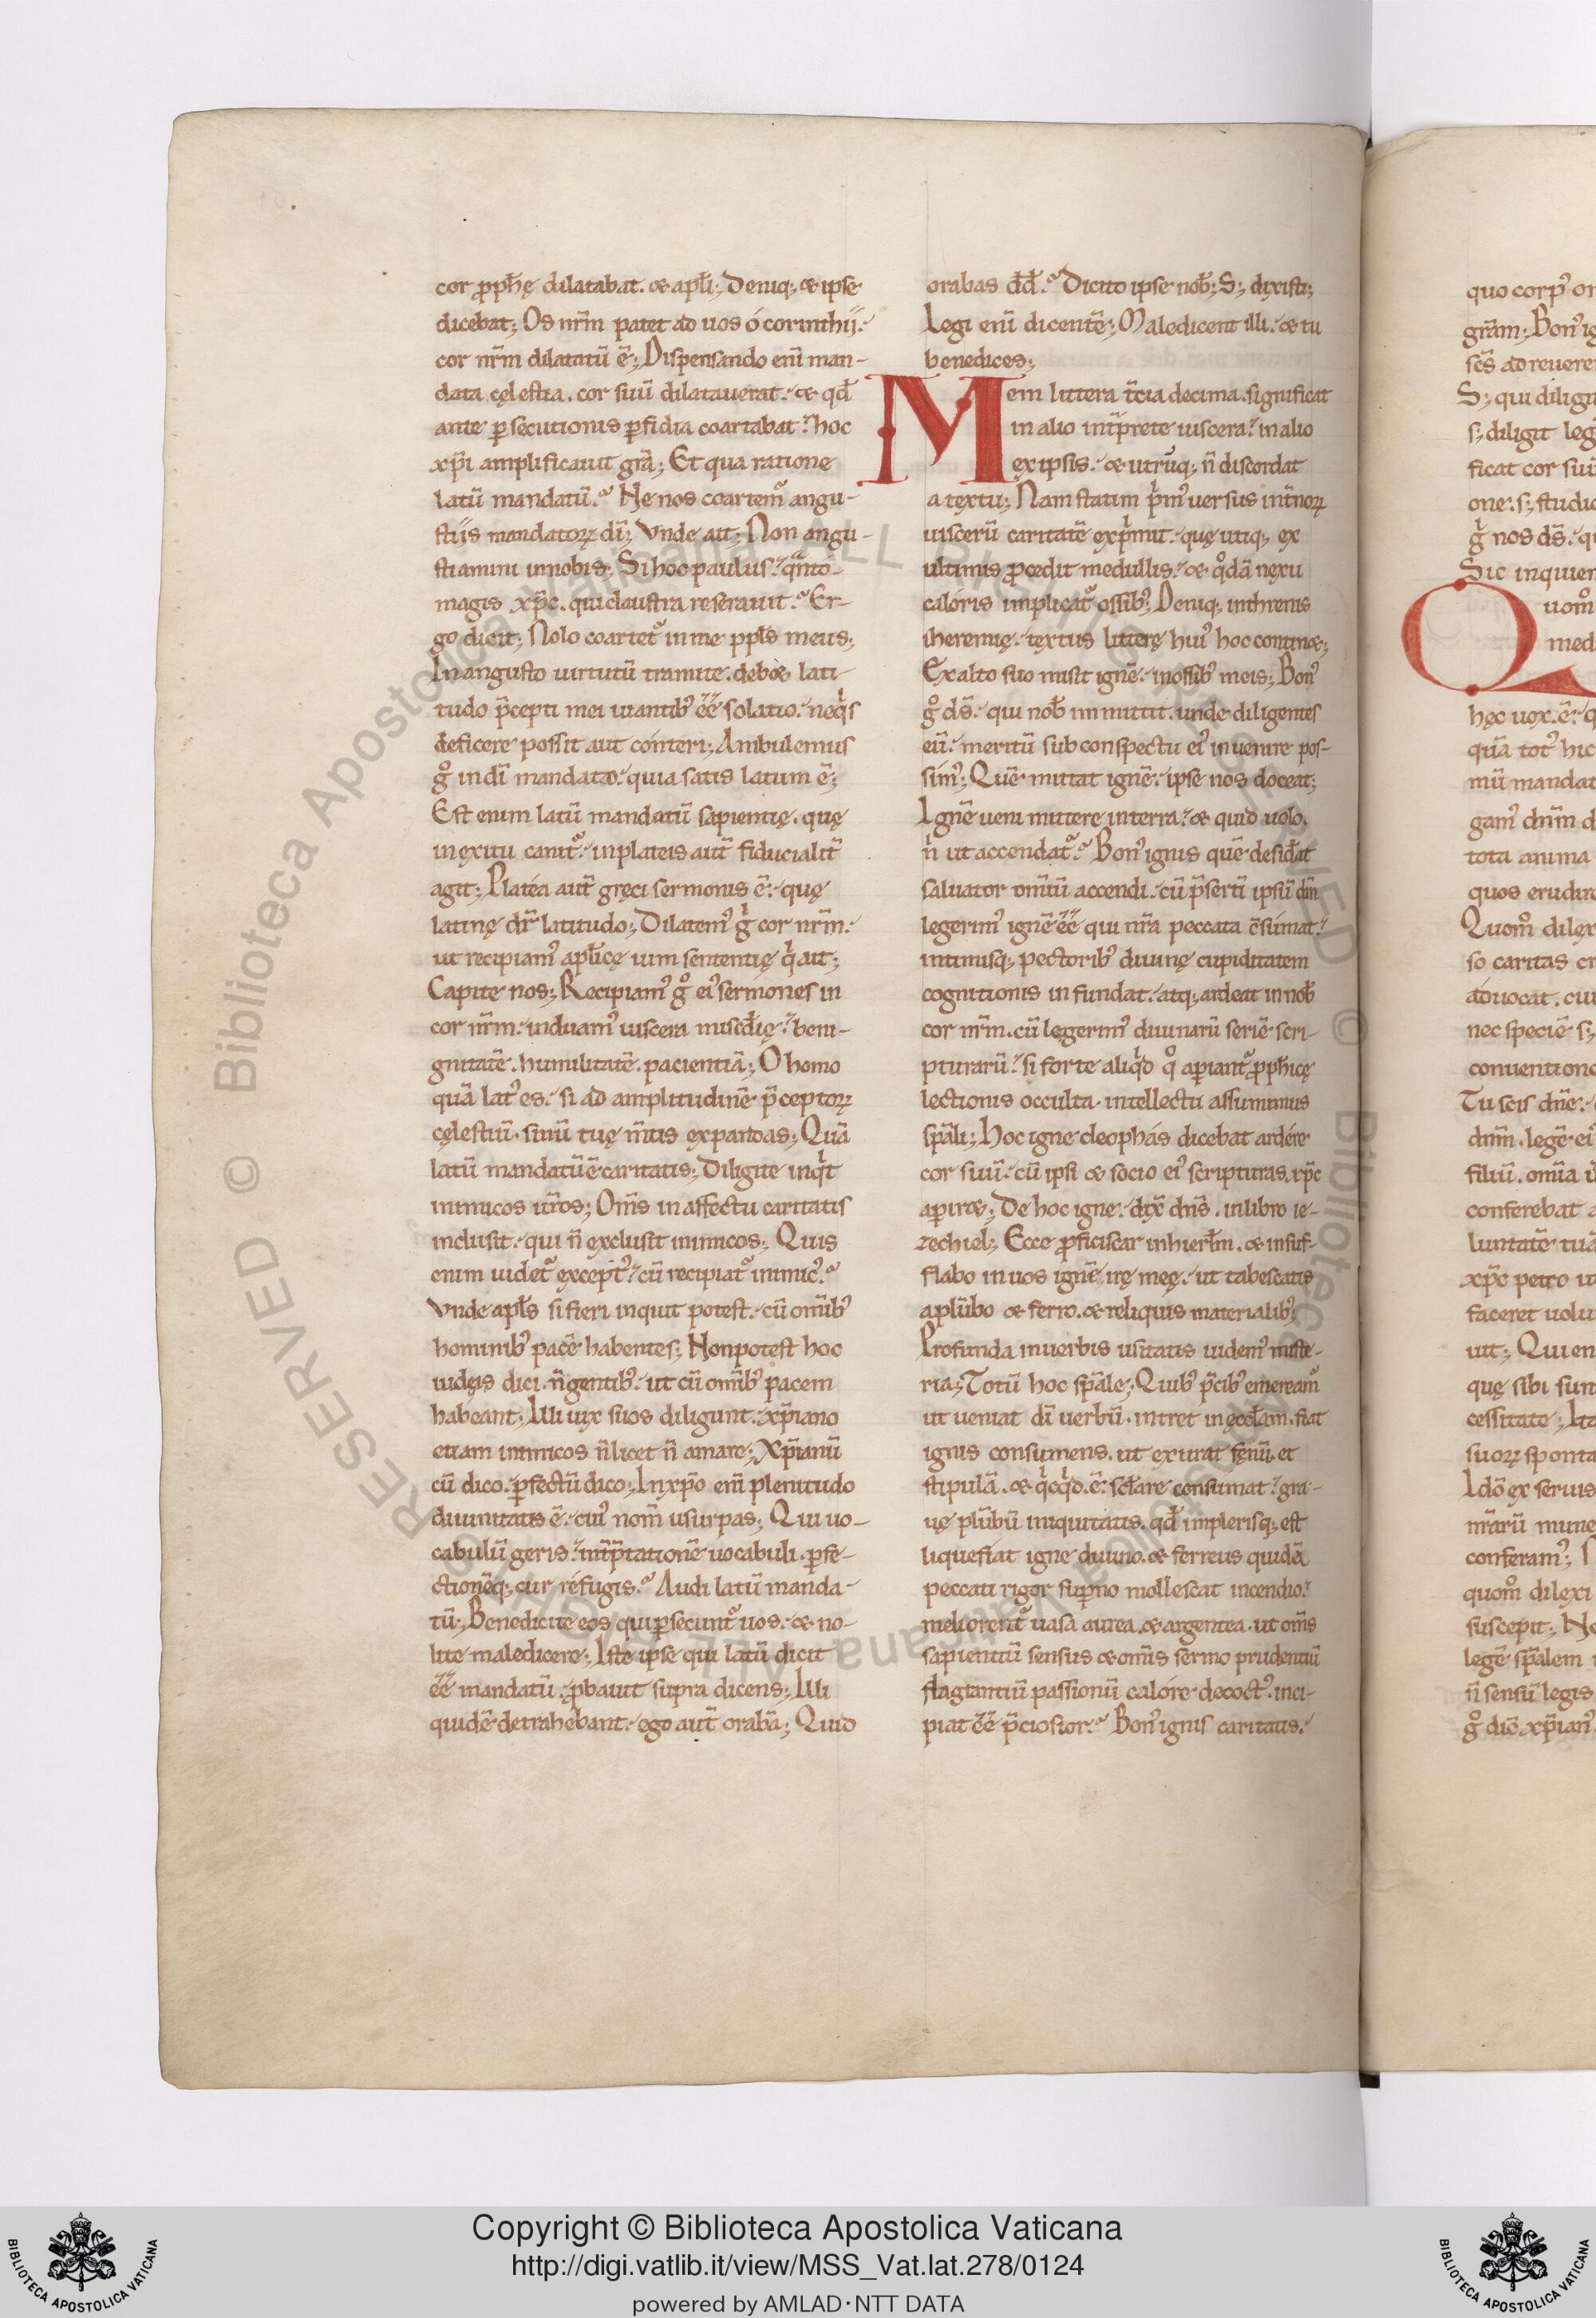 cor ꝓph̃ę dilatabat. & apl̃i; Deniq; & ipse
dicebat; Os nr̃m patet ad uos ó corinthij.
cor nr̃m dilatatũ ẽ; Dispensando eni̅ man-
data cęlestia. cor suũ dilatauerat. & qđ
ante ꝑsecutionis ꝑfidia coartabat. hoc
xp̃i amplificauit gr̃a; Et qua ratione
latũ mandatũ? Ne nos coartemᷣ angu-
stijs mandatoꝝ dĩ; Vnde ait; Non angu-
stiamini in nobis; Si hoc paulus. qᵃnto-
magis xp̃c. qui claustra reserauit? Er-
go dicit; Nolo coartetᷣ in me ppl̃s meus;
In angusto uirtutũ tramite. debet lati-
tudo p̃cepti mei uiantibꝰ ẽẽ solatio. neqⁱs
deficere possit aut cónteri; Ambulemus
gᵒ in dĩ mandato. quia satis latum ẽ;
Est enim latũ mandatũ sapientię. quę
in exitu canitᷣ. in plateis aut̃ fiducialit̃
agit; Platéa aut̃ gręci sermonis ẽ. quę
latinę dr̃ latitudo; Dilatemꝰ gⁱ cor nr̃m.
ut recipiamꝰ apl̃icę uim sententię qⁱ ait;
Capite nos; Recipiamꝰ gᵒ eiꝰ sermones in
cor nr̃m. induamꝰ uiscera mis̃cđię. beni-
gnitatẽ. humilitatẽ. pacientiã; O homo
quã latꝰ es. si ad amplitudinẽ p̃ceptoꝝ
cęlestiũ. sinũ tuę m̃tis expandas; Quã
latũ mandatũ ẽ caritatis; Diligite inqⁱt
inimicos ur̃os; Om̃s in affectu caritatis
inclusit. qui ñ exclusit inimicos; Quis
enim uidetᷣ exceptꝰ. cũ recipiatᷣ inimicꝰ?
Vnde apl̃s si fieri inquit potest. cũ omĩbꝰ
hominibꝰ pacẽ habentes; Non potest hoc
iudęis dici. ñ gentibꝰ. ut cũ omĩbꝰ pacem
habeant; Illi uix suos diligunt. xp̃iano
etiam inimicos ñ licet ñ amare; Xp̃ianũ
cũ dico. ꝑfectũ dico; In xp̃o enĩ plenitudo
diuinitatis ẽ. cuiꝰ nom̃ usurpas; Qui uo-
cabulũ geris. int̃p̃tationẽ uocabuli. ꝑfe-
ctionẽq; cur réfugis? Audi latũ manda-
tũ; Benedicite eos qui ꝑsecuntᷣ uos. & no-
lite maledicere; Iste ipse qui latũ dicit
ẽẽ mandatũ. ꝓbauit supra dicens; Illi
quidẽ detrahebant. ego aut̃ orabã; Quid
orabas dđ? Dicito ipse nob̃; S; dixisti;
Legi enĩ dicentẽ; Maledicent illi. & tu
benedices;
Mem littera t̃cia decima. significat
in alio int̃prete uiscera. in alio
ex ipsis. & utrũq; ñ discordat
a textu; Nam statim pⁱmꝰ uersus int̃noꝝ
uiscerũ caritatẽ expⁱmit. quę utiq; ex
ultimis ꝓcedit medullis. & qᵒdã nexu
calóris implicatᷣ ossibꝰ; Deniq; in threnis
iheremię. textus litterę huiꝰ hoc continet;
Ex alto suo misit ignẽ. in ossibꝰ meis; Bonꝰ
gᵒ ds̃. qui nob̃ immittit. unde diligentes
eũ. meritũ sub conspectu eiꝰ inuenire pos-
simꝰ; Quẽ mittat ignẽ. ipse nos doceat;
Ignẽ ueni mittere in terra. & quid uolo.
ñ ut accendatᷣ? Bonꝰ ignis quẽ desiđat
saluator om̃ĩũ accendi. cũ p̃sertĩ ipsũ dñm
legerimꝰ ignẽ ẽẽ qui nr̃a peccata c̃súmat.
intimisq; pectoribꝰ diuinę cupiditatem
cognitionis infundat. atq; ardeat in nob̃
cor nr̃m. cũ legerimꝰ diuinarũ seriẽ scri-
pturarũ. si forte aliqⁱd qᵒ aꝑiantᷣ ꝓph̃icę
lectionis occulta. intellectu assumimus
sp̃ali; Hoc igne cleophás dicebat ardére
cor suũ. cũ ipsi & socio eiꝰ scripturas. xp̃c
aꝑiret; De hoc igne. dix̃ dñs. in libro ie-
zechiel; Ecce ꝓficiscar in hierlm̃. & insuf-
flabo in uos ignẽ irę meę. ut tabescatis
a plũbo & ferro. & reliquis materialibꝰ;
Profunda in uerbis usitatis uidemꝰ miste-
ria; Totũ hoc sp̃ale; Quibꝰ p̃cibꝰ emereamᷣ
ut ueniat dĩ uerbũ. intret in ęccl̃am. fiat
ignis consumens. ut exurat fęnũ. et
stipulã. & qⁱcqⁱd. ẽ. sc̃l̃are consumat. gra-
uę plũbũ iniquitatis. qđ implerisq; est
liquefiat igne diuino. & ferreus quidẽ
peccati rigor suꝑno mollescat incendio.
meliorentᷣ uasa aurea. & argentea. ut om̃s
sapientiũ sensus & om̃is sermo prudentiũ
flagtantiũ passionũ calore decoctꝰ. inci-
piat ẽẽ p̃ciosior? Bonꝰ ignis caritatis.
quo corpꝰ
gr̃am; Bonꝰ
sc̃s ad
S; qui
s; diligit leg
ficat cor suũ
one. s; studio
gⁱ nos ds̃.
Sic inquien
Quomᵒ
med
hęc uox. ẽ.
quã totꝰ hic
mũ mandat
gamꝰ dñm d
tota anima
quos erudire
Quomᵒ dilex
so caritas
aduocat. cui
nec speciẽ s;
conuentione
Tu scis dñe.
dñm. legẽ eiꝰ
filiũ. omĩa
conferebat a
luntatẽ tuã
xp̃c petro ut
faceret uolu
uit; Qui en
quę sibi sunt
cessitate; Ita
suoꝝ sponta
Idõ ex seruis
nr̃arũ mune
conferamꝰ;
quomᵒ dilexi
suscepit; Ne
legẽ sp̃alem
ñ sensũ legis
gᵒ dic̃ xp̃ianꝰ
Copyright © Biblioteca Apostolica Vaticana
http://digi.vatlib.it/view/MSS_Vat.lat.278/0124
powered by AMLAD·NTT DATA
BIBLIOTECA APOSTOLICA VATICANA
BIBLIOTECA APOSTOLICA VATICANA
RESERVED © Biblioteca Apostolica Vaticana ALL RIGHTS RESERVED © Biblioteca Apostolica Vaticana ALL RIGHTS